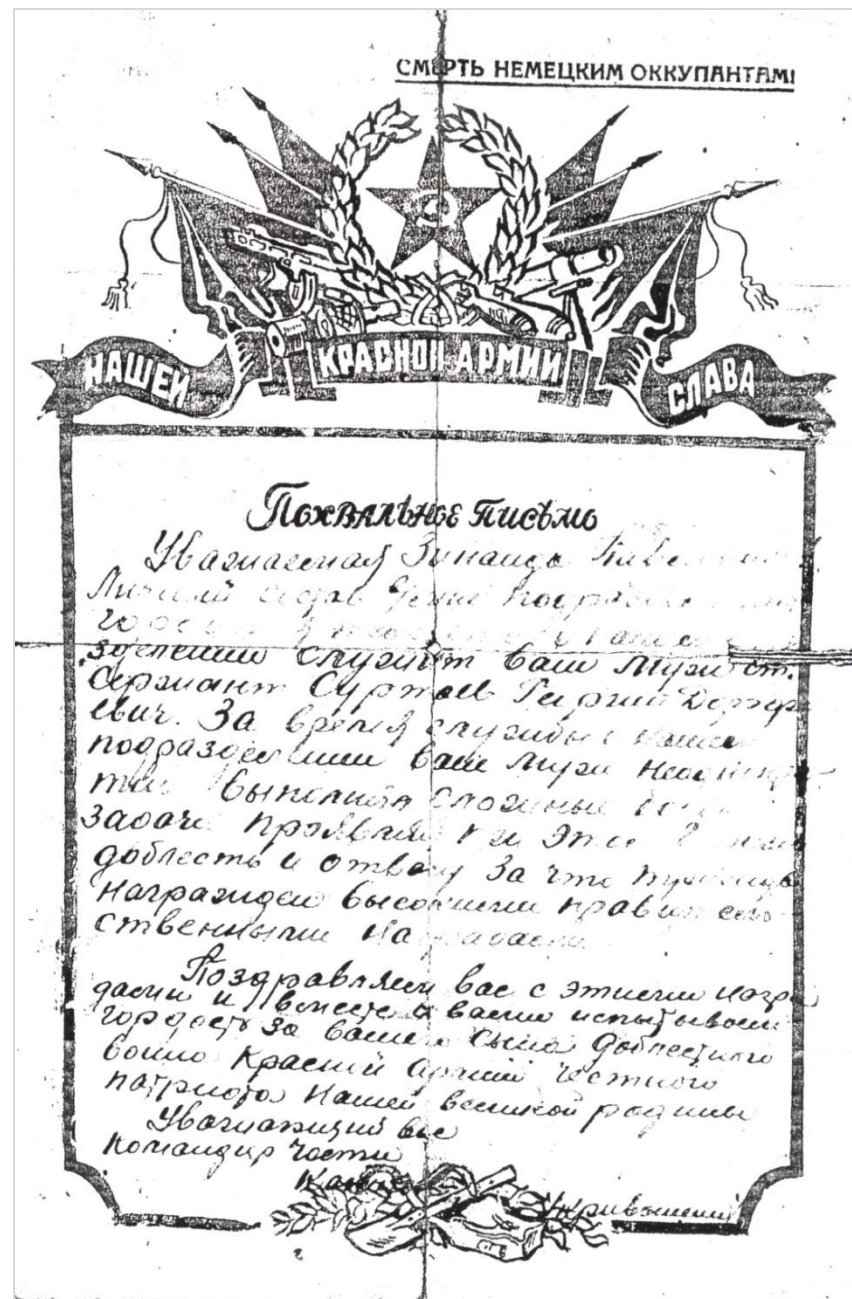 СМЕРТЬ НЕМЕЦКИМ ОККУПАНТАМ!
НАШЕЙ КРАСНОЙ АРМИИ СЛАВА
Похвальное письмо
Уважаемая Зинаида
Личный
зделении служит ваш муж ст.
Сержант Суртаев Георгий
евич. За время службы в нашем
подразделении ваш муж
выполнял сложные
задачи проявляя при этом
доблесть и отвагу За что трижды
награжден высокими правитель
ственными наградами
Поздравляем вас с этими награ
дами и вместе с вами испытываем
гордость за вашего сына доблестного
воина Красной армии честного
патриота Нашей великой родины
Уважающий вас
Командир части